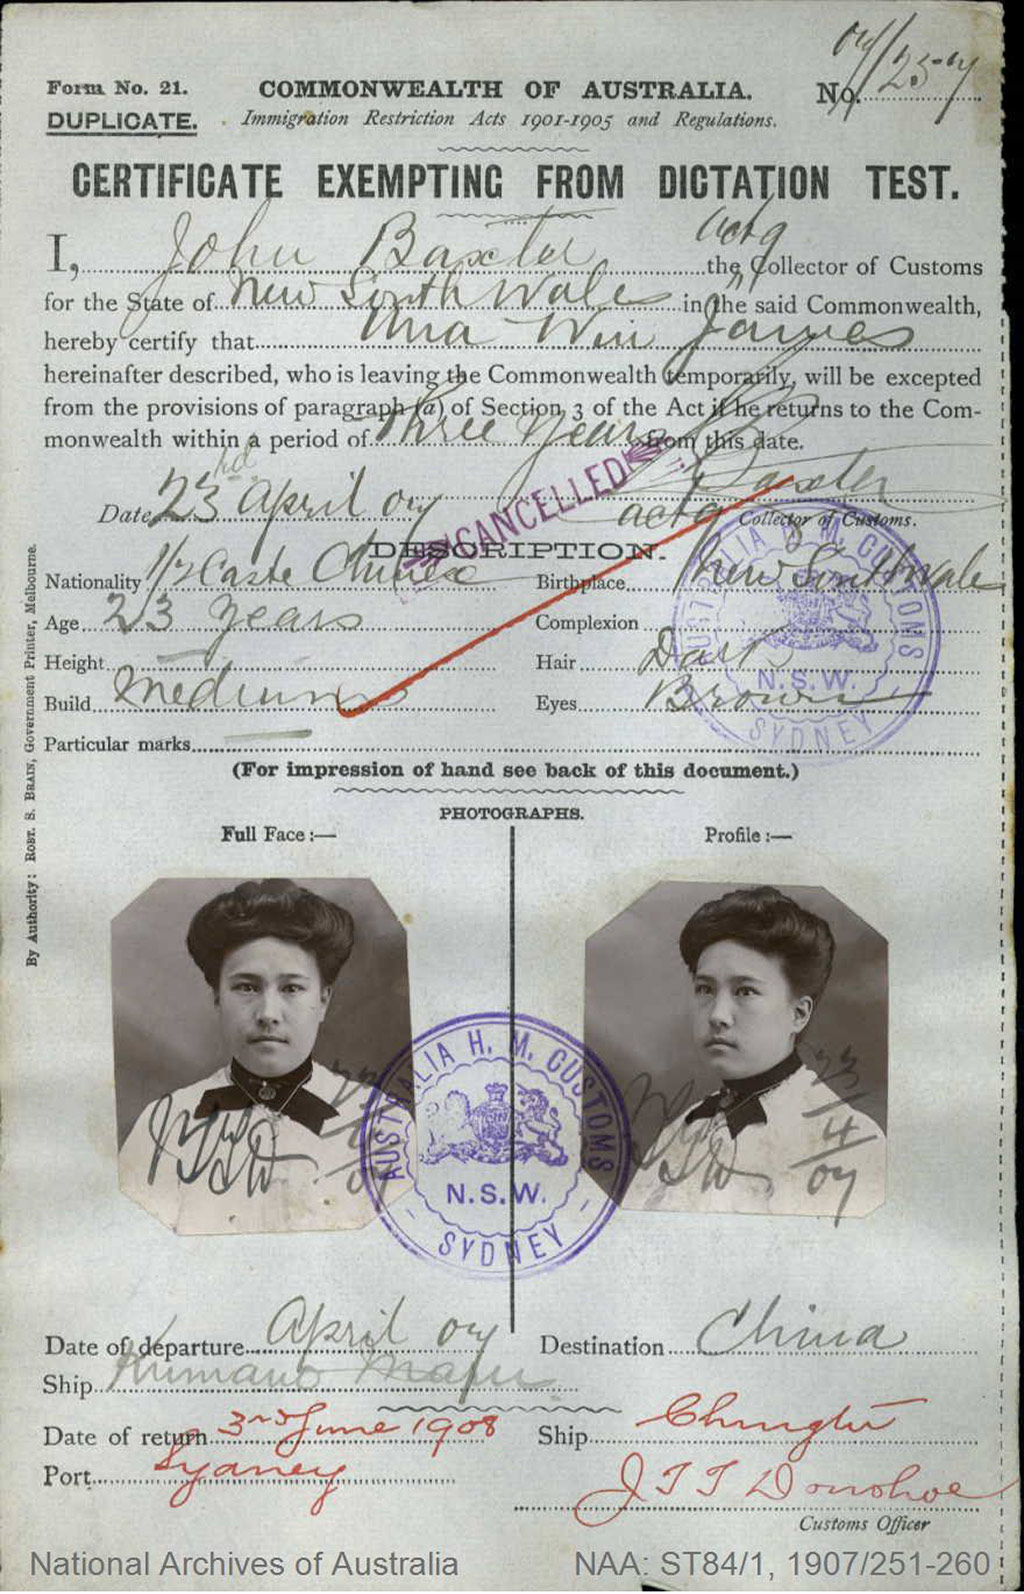 Form No. 21.
DUPLICATE.
COMMONWEALTH OF AUSTRALIA.
Immigration Restriction Acts 1901-1905 and Regulations.
No. 07/25-
CERTIFICATE EXEMPTING FROM DICTATION TEST.
I, John Baxter actg the Collector of Customs
for the State of New South Wales in the said Commonwealth,
hereby certify that James
hereinafter described, who is leaving the Commonwealth temporarily, will be excepted
from the provisions of paragraph (a) of Section 3 of the Act if he returns to the Com-
monwealth within a period of Three Years from this date.
Date 23rd April 07
Baxter
actg Collector of Customs.
CANCELLED
DESCRIPTION.
Nationality 1/2 Caste Chinese
Birthplace New South Wales
Age 23 years
Complexion
Height
Hair Dark
Build Medium
Eyes Brown
Particular marks
AUSTRALIA H. M. CUSTOMS
N.S.W.
SYDNEY
(For impression of hand see back of this document.)
PHOTOGRAPHS.
Full Face:—
Profile:—
23/4/07
23/4/07
AUSTRALIA H. M. CUSTOMS
N.S.W.
SYDNEY
Date of departure April 07
Destination China
Ship Kumano Maru
Date of return 3rd June 1908
Ship Chingtu
Port Sydney
J T T Donohoe
Customs Officer
By Authority: ROBT. S. BRAIN, Government Printer, Melbourne.
National Archives of Australia
NAA: ST84/1, 1907/251-260